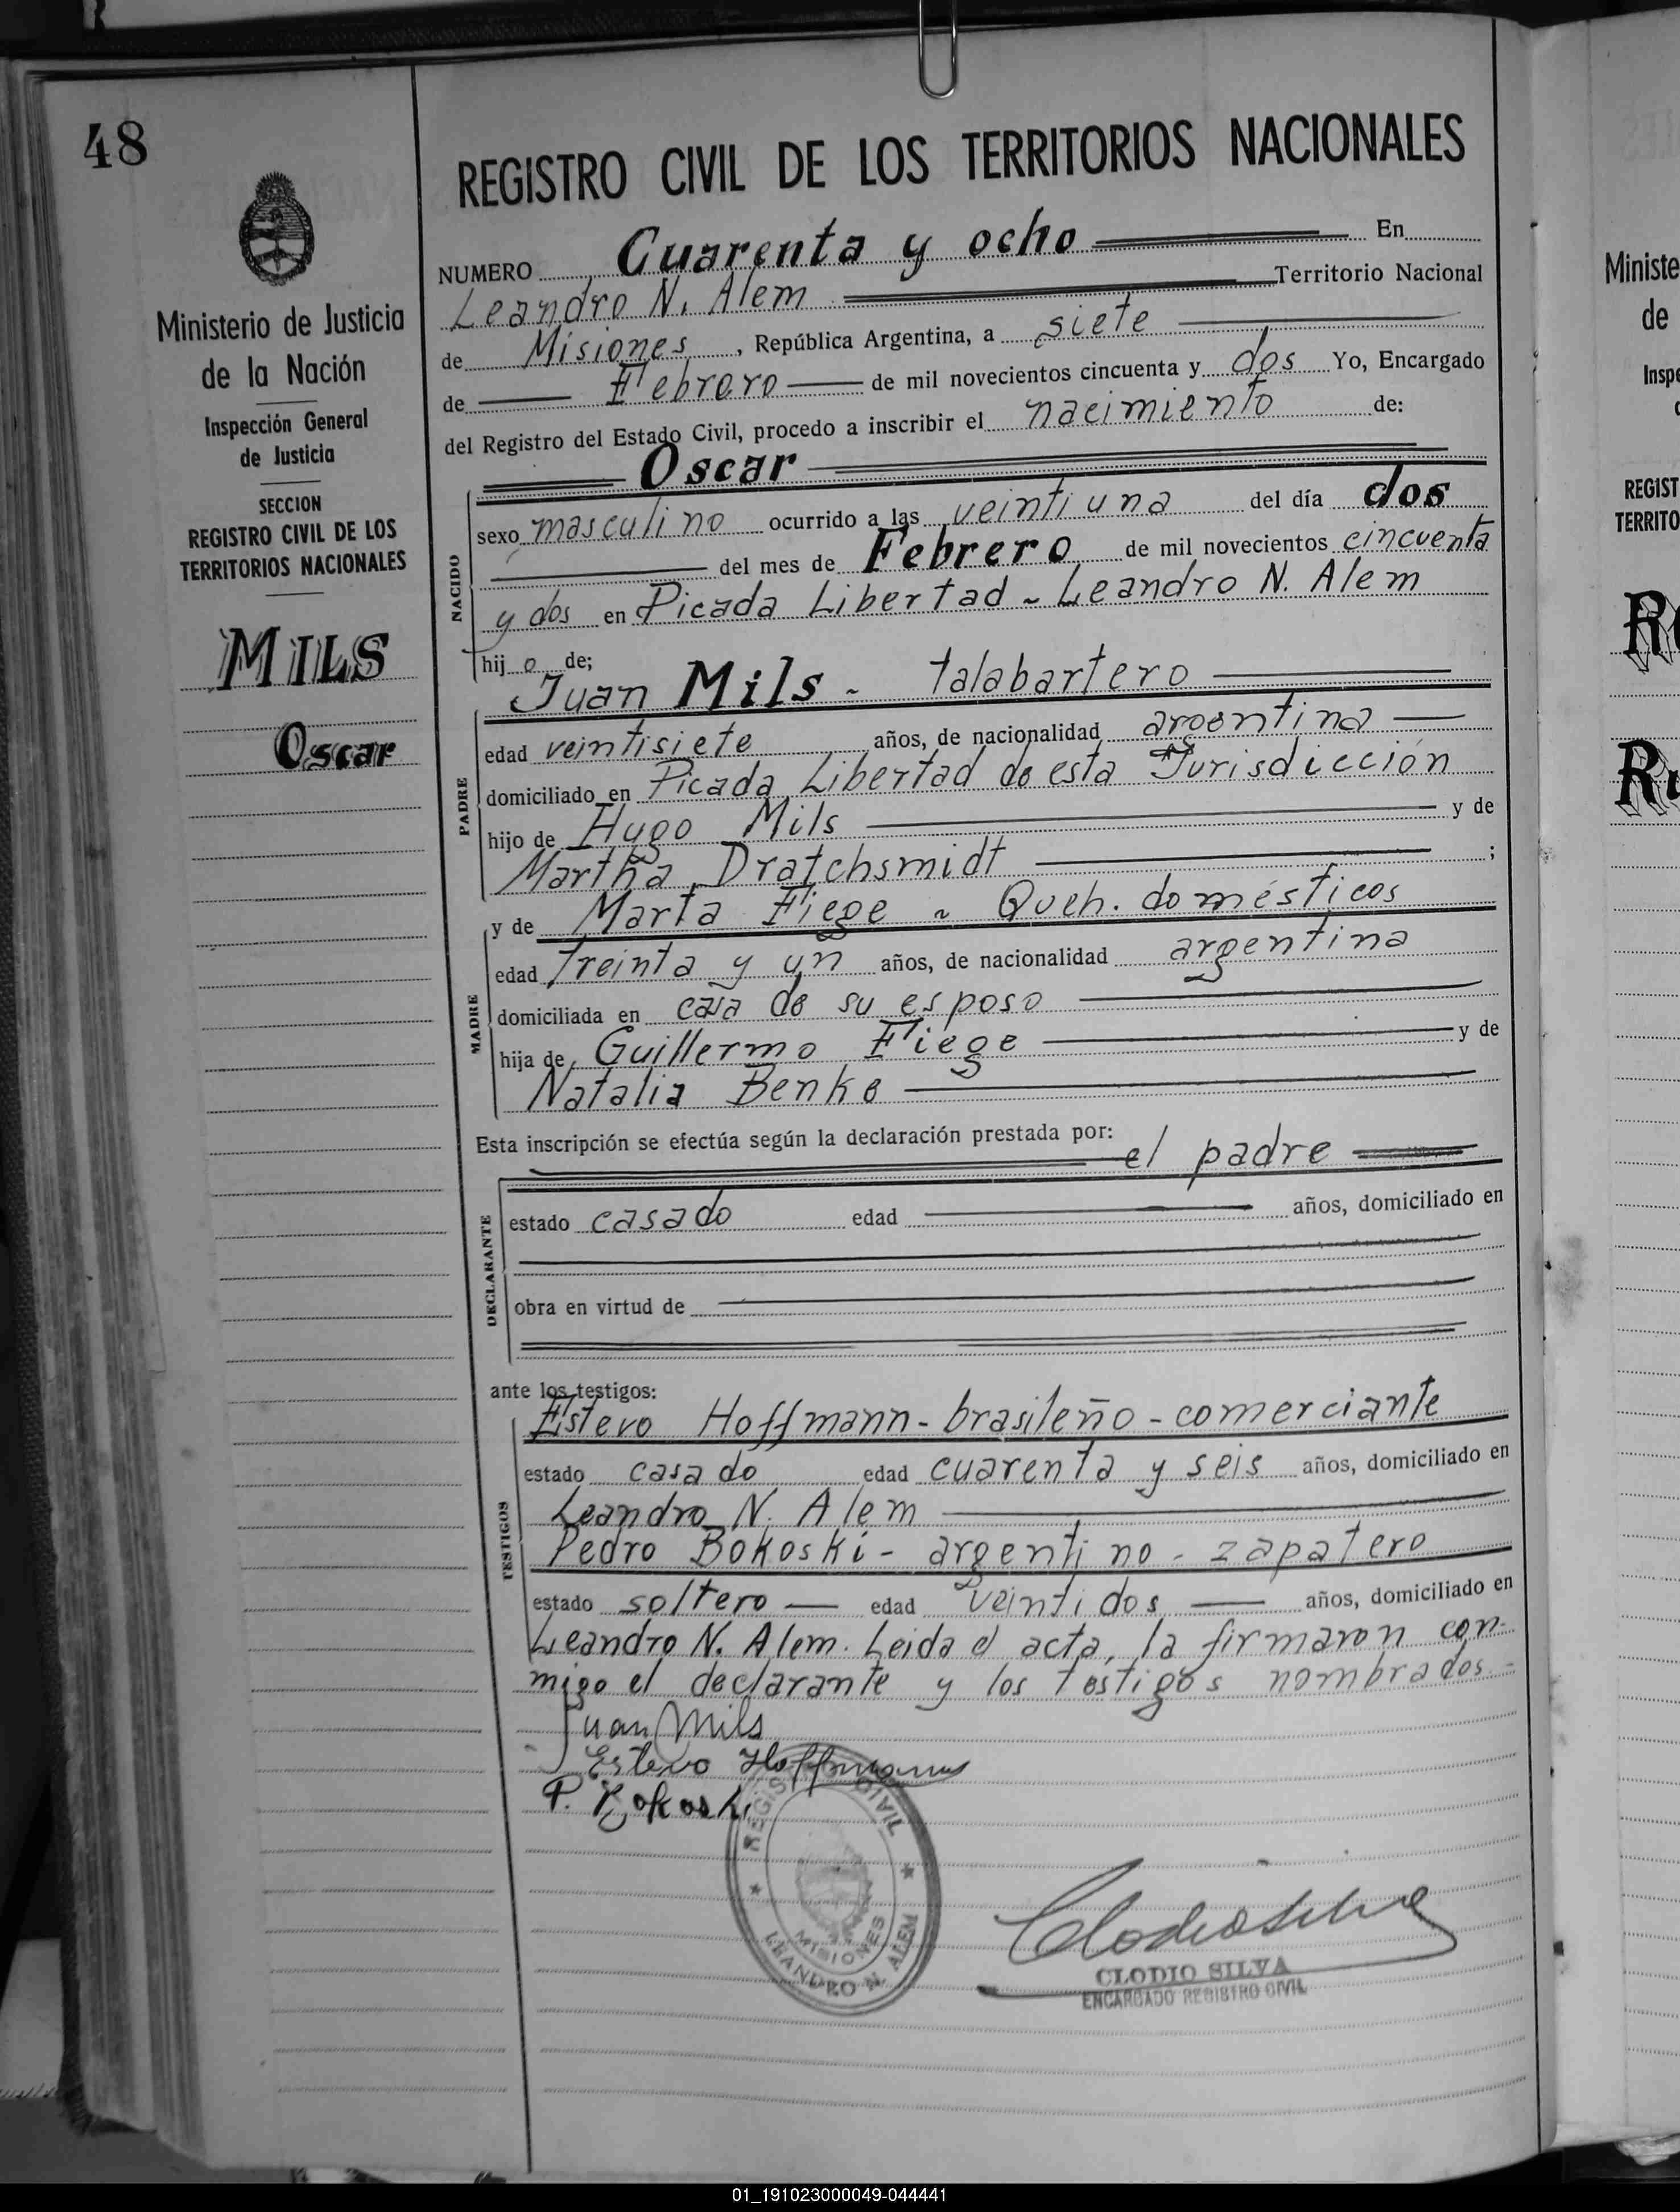 48
Ministerio de Justicia
de la Nación
Inspección General
de Justicia
SECCION
REGISTRO CIVIL DE LOS
TERRITORIOS NACIONALES
MILS
Oscar
REGISTRO CIVIL DE LOS TERRITORIOS NACIONALES
NUMERO Cuarenta y ocho En
Leandro N. Alem Territorio Nacional
de Misiones, República Argentina, a siete
de Febrero de mil novecientos cincuenta y dos Yo, Encargado
del Registro del Estado Civil, procedo a inscribir el nacimiento de:
Oscar
NACIDO
sexo masculino ocurrido a las veintiuna del día dos
del mes de Febrero de mil novecientos cincuenta
y dos en Picada Libertad - Leandro N. Alem
hijo de;
Juan Mils - talabartero
PADRE
edad veintisiete años, de nacionalidad argentina
domiciliado en Picada Libertad de esta Jurisdicción
hijo de Hugo Mils y de
Martha Dratchsmidt ;
y de Marta Fiege - Queh. domésticos
MADRE
edad treinta y un años, de nacionalidad argentina
domiciliada en casa de su esposo
hija de Guillermo Fiege y de
Natalia Benke
Esta inscripción se efectúa según la declaración prestada por:
el padre
DECLARANTE
estado casado edad años, domiciliado en
obra en virtud de
ante los testigos:
Estevo Hoffmann - brasileño - comerciante
TESTIGOS
estado casado edad cuarenta y seis años, domiciliado en
Leandro N. Alem
Pedro Bokoski - argentino - zapatero
estado soltero edad veintidos años, domiciliado en
Leandro N. Alem. Leida el acta, la firmaron con-
migo el declarante y los testigos nombrados.-
Juan Mils
Estevo Hoffmann
P. Bokoski
REGISTRO CIVIL
MISIONES
LEANDRO N. ALEM
Clodio Silva
CLODIO SILVA
ENCARGADO REGISTRO CIVIL
Ministe
de
Inspe
REGIST
TERRITO
01_191023000049-044441